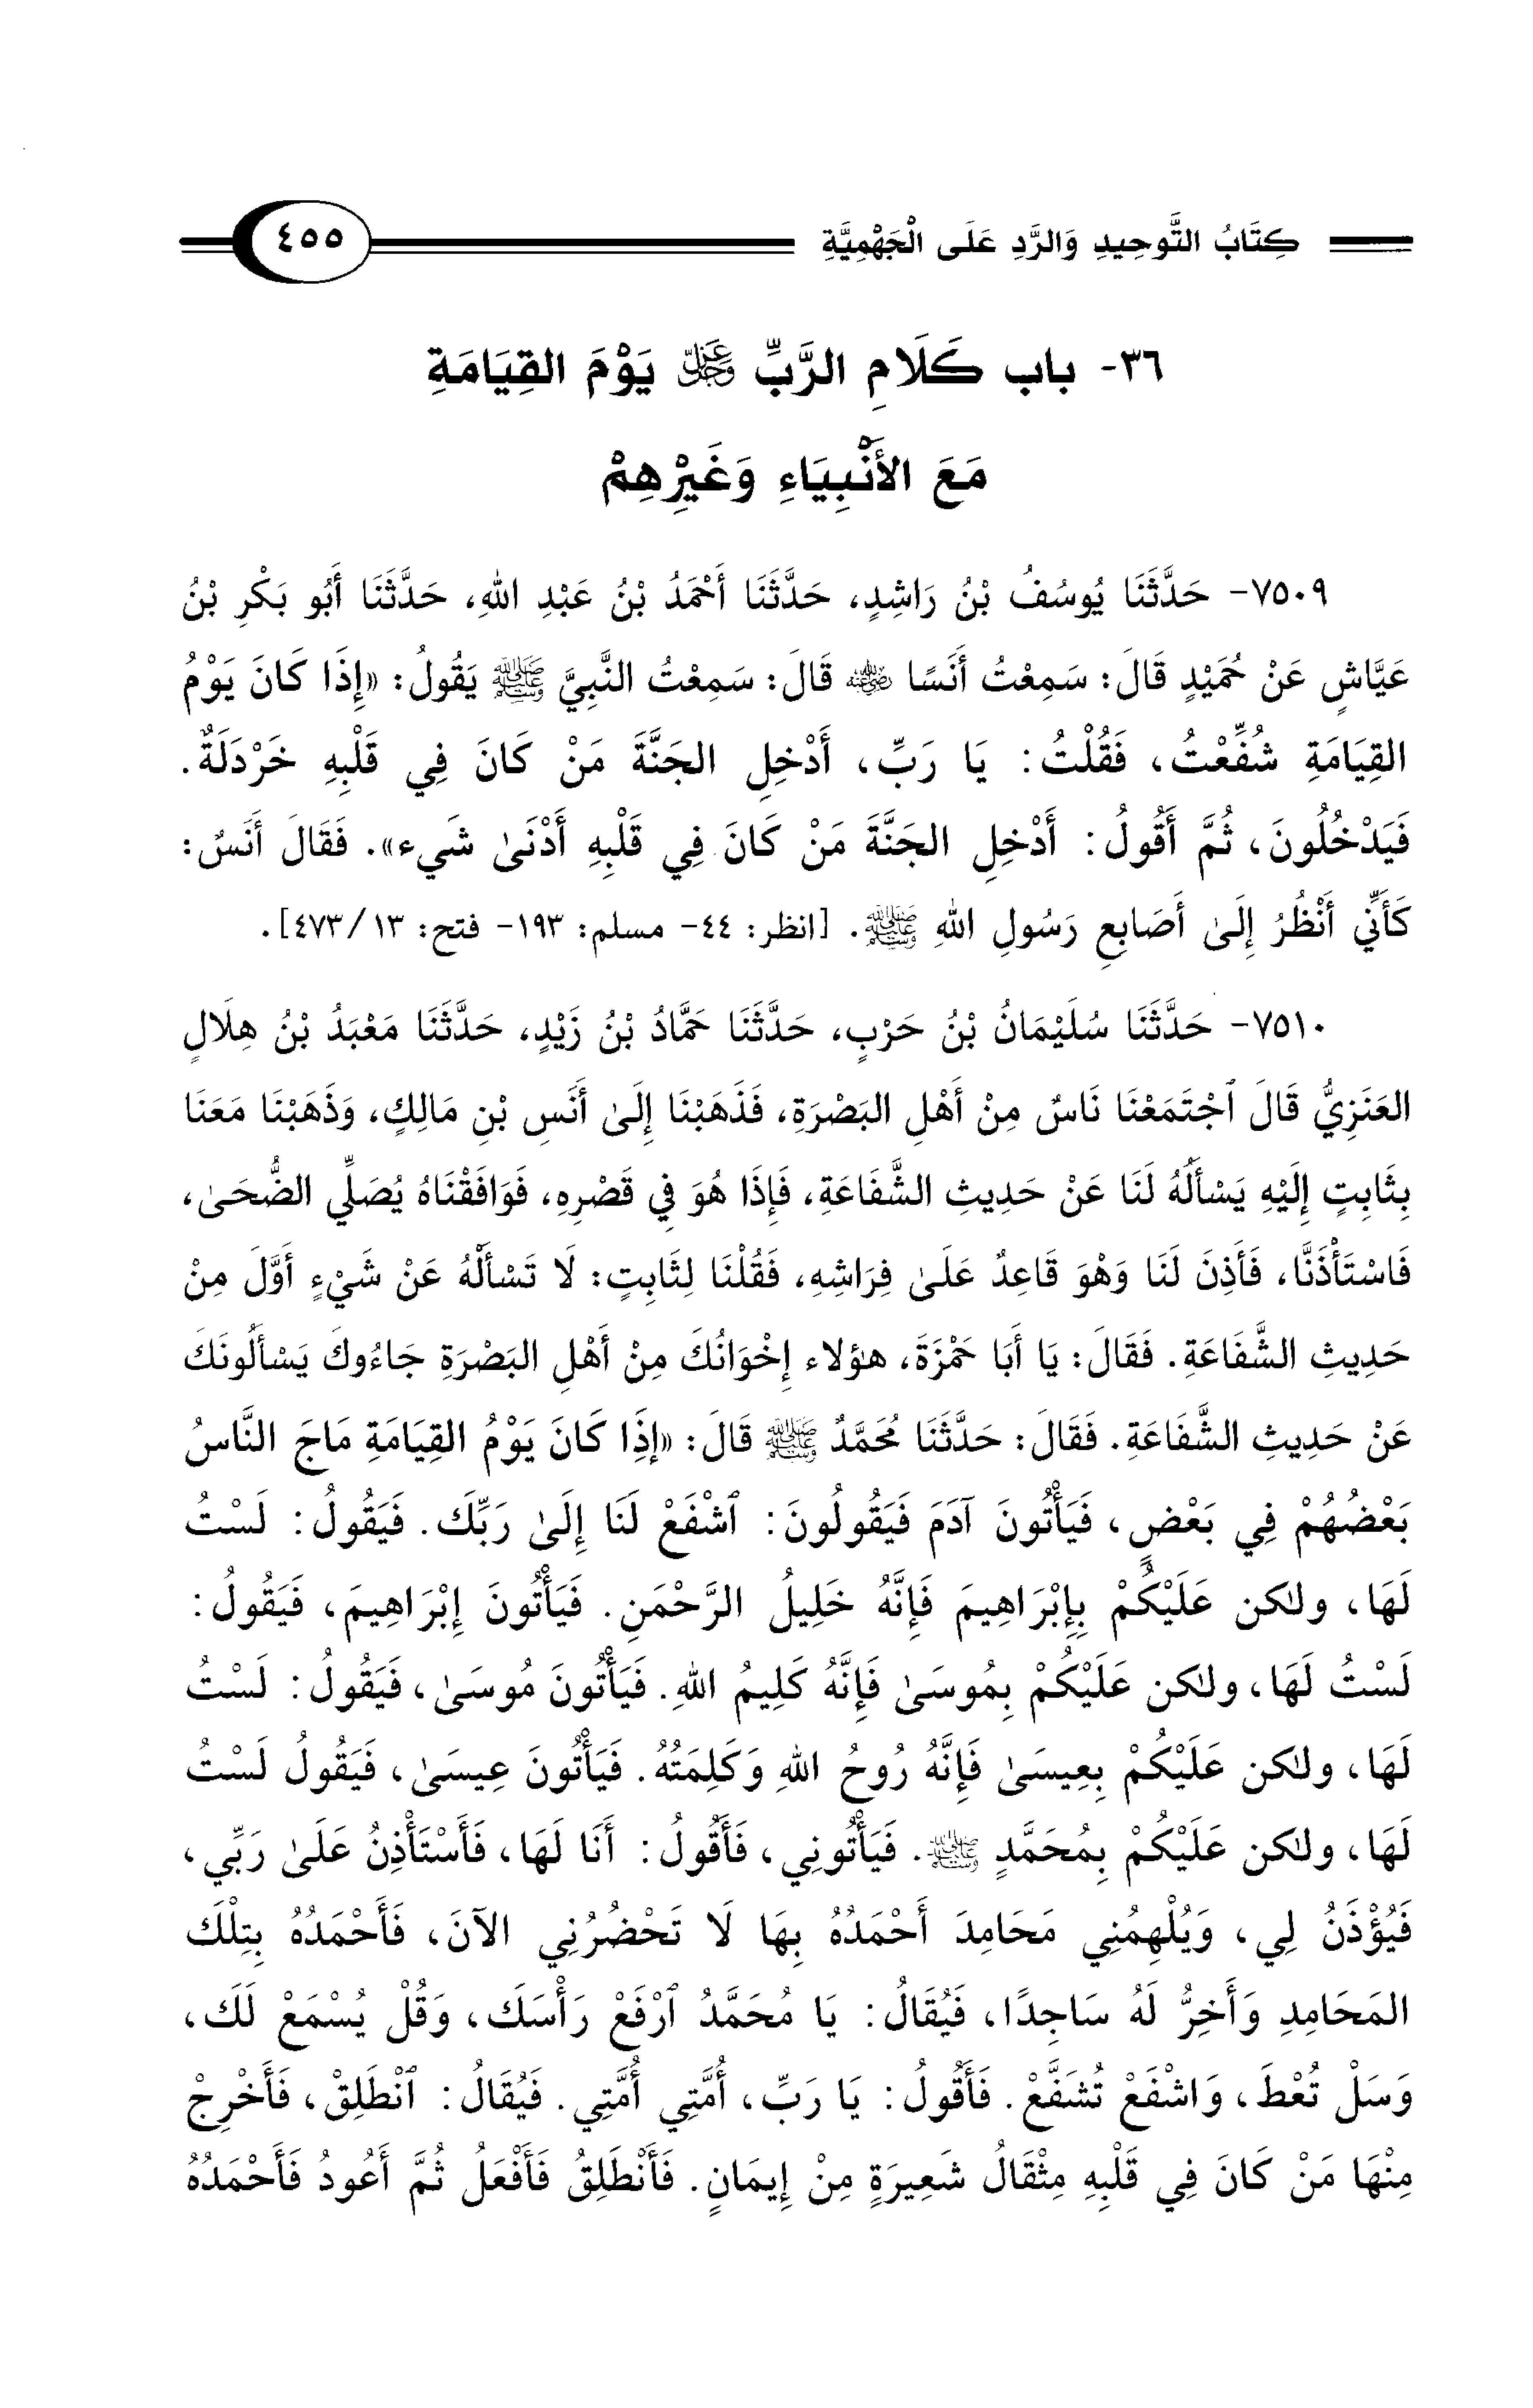 كِتَابُ التَّوحِيدِ وَالرَّدِ عَلَى الْجَهْمِيَّةِ ٤٥٥
٣٦- باب كَلَامِ الرَّبِّ عَزَّ وَجَلَّ يَوْمَ القِيَامَةِ
مَعَ الأَنْبِيَاءِ وَغَيْرِهِمْ
٧٥٠٩- حَدَّثَنَا يُوسُفُ بْنُ رَاشِدٍ، حَدَّثَنَا أَحْمَدُ بْنُ عَبْدِ اللهِ، حَدَّثَنَا أَبُو بَكْرِ بْنُ
عَيَّاشٍ عَنْ حُمَيْدٍ قَالَ: سَمِعْتُ أَنَسًا رضي الله عنه قَالَ: سَمِعْتُ النَّبِيَّ ﷺ يَقُولُ: «إِذَا كَانَ يَوْمُ
القِيَامَةِ شُفِّعْتُ، فَقُلْتُ: يَا رَبِّ، أَدْخِلِ الجَنَّةَ مَنْ كَانَ فِي قَلْبِهِ خَرْدَلَةٌ.
فَيَدْخُلُونَ، ثُمَّ أَقُولُ: أَدْخِلِ الجَنَّةَ مَنْ كَانَ فِي قَلْبِهِ أَدْنَىٰ شَيء». فَقَالَ أَنَسٌ:
كَأَنِّي أَنْظُرُ إِلَىٰ أَصَابِعِ رَسُولِ اللهِ ﷺ. [انظر: ٤٤- مسلم: ١٩٣- فتح: ١٣/ ٤٧٣].
٧٥١٠- حَدَّثَنَا سُلَيْمَانُ بْنُ حَرْبٍ، حَدَّثَنَا حَمَّادُ بْنُ زَيْدٍ، حَدَّثَنَا مَعْبَدُ بْنُ هِلَالٍ
العَنَزِيُّ قَالَ ٱجْتَمَعْنَا نَاسٌ مِنْ أَهْلِ البَصْرَةِ، فَذَهَبْنَا إِلَىٰ أَنَسِ بْنِ مَالِكٍ، وَذَهَبْنَا مَعَنَا
بِثَابِتٍ إِلَيْهِ يَسْأَلُهُ لَنَا عَنْ حَدِيثِ الشَّفَاعَةِ، فَإِذَا هُوَ فِي قَصْرِهِ، فَوَافَقْنَاهُ يُصَلِّي الضُّحَىٰ،
فَاسْتَأْذَنَّا، فَأَذِنَ لَنَا وَهْوَ قَاعِدٌ عَلَىٰ فِرَاشِهِ، فَقُلْنَا لِثَابِتٍ: لَا تَسْأَلْهُ عَنْ شَيْءٍ أَوَّلَ مِنْ
حَدِيثِ الشَّفَاعَةِ. فَقَالَ: يَا أَبَا حَمْزَةَ، هؤلاء إِخْوَانُكَ مِنْ أَهْلِ البَصْرَةِ جَاءُوكَ يَسْأَلُونَكَ
عَنْ حَدِيثِ الشَّفَاعَةِ. فَقَالَ: حَدَّثَنَا مُحَمَّدٌ ﷺ قَالَ: «إِذَا كَانَ يَوْمُ القِيَامَةِ مَاجَ النَّاسُ
بَعْضُهُمْ فِي بَعْضٍ، فَيَأْتُونَ آدَمَ فَيَقُولُونَ: ٱشْفَعْ لَنَا إِلَىٰ رَبِّكَ. فَيَقُولُ: لَسْتُ
لَهَا، ولٰكن عَلَيْكُمْ بِإِبْرَاهِيمَ فَإِنَّهُ خَلِيلُ الرَّحْمَنِ. فَيَأْتُونَ إِبْرَاهِيمَ، فَيَقُولُ:
لَسْتُ لَهَا، ولٰكن عَلَيْكُمْ بِمُوسَىٰ فَإِنَّهُ كَلِيمُ اللهِ. فَيَأْتُونَ مُوسَىٰ، فَيَقُولُ: لَسْتُ
لَهَا، ولٰكن عَلَيْكُمْ بِعِيسَىٰ فَإِنَّهُ رُوحُ اللهِ وَكَلِمَتُهُ. فَيَأْتُونَ عِيسَىٰ، فَيَقُولُ لَسْتُ
لَهَا، ولٰكن عَلَيْكُمْ بِمُحَمَّدٍ ﷺ. فَيَأْتُونِي، فَأَقُولُ: أَنَا لَهَا، فَأَسْتَأْذِنُ عَلَىٰ رَبِّي،
فَيُؤْذَنُ لِي، وَيُلْهِمُنِي مَحَامِدَ أَحْمَدُهُ بِهَا لَا تَحْضُرُنِي الآنَ، فَأَحْمَدُهُ بِتِلْكَ
المَحَامِدِ وَأَخِرُّ لَهُ سَاجِدًا، فَيُقَالُ: يَا مُحَمَّدُ ٱرْفَعْ رَأْسَكَ، وَقُلْ يُسْمَعْ لَكَ،
وَسَلْ تُعْطَ، وَاشْفَعْ تُشَفَّعْ. فَأَقُولُ: يَا رَبِّ، أُمَّتِي أُمَّتِي. فَيُقَالُ: ٱنْطَلِقْ، فَأَخْرِجْ
مِنْهَا مَنْ كَانَ فِي قَلْبِهِ مِثْقَالُ شَعِيرَةٍ مِنْ إِيمَانٍ. فَأَنْطَلِقُ فَأَفْعَلُ ثُمَّ أَعُودُ فَأَحْمَدُهُ